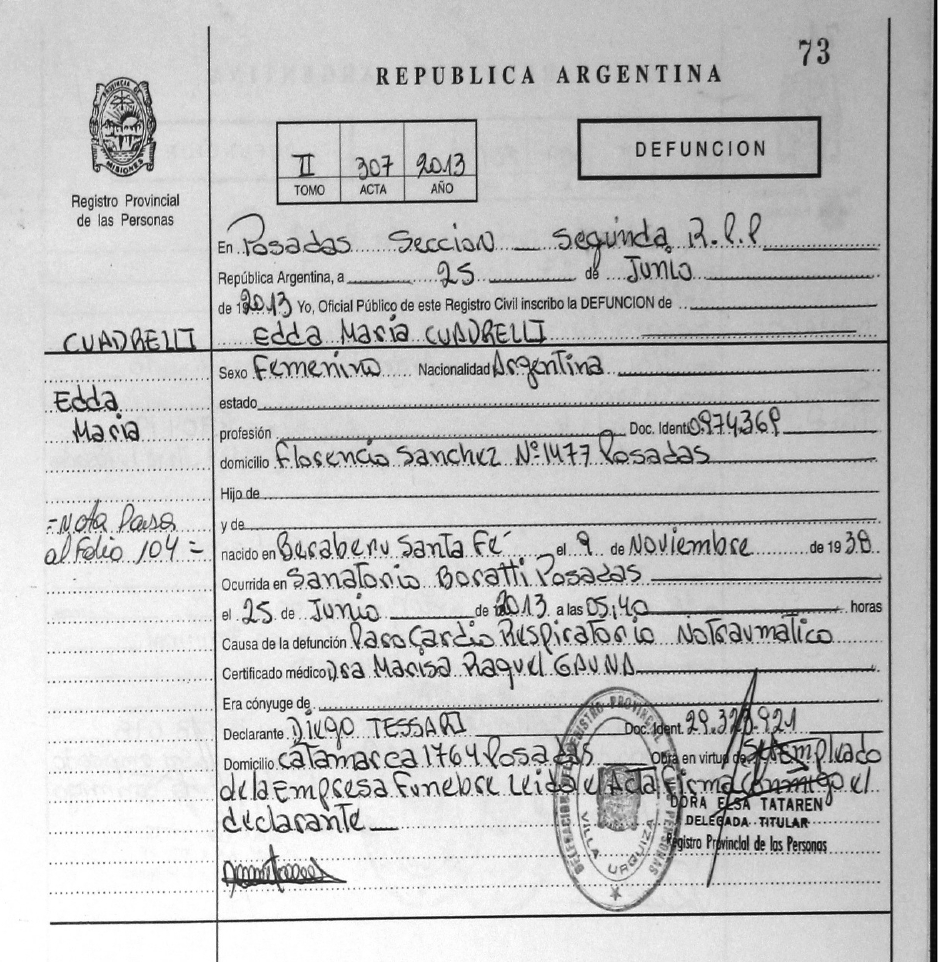 73
REPUBLICA ARGENTINA
PROVINCIA DE MISIONES
Registro Provincial
de las Personas
II 307 2013
TOMO ACTA AÑO
DEFUNCION
En Posadas Seccion segunda R.P.P
República Argentina, a 25 de Junio
de 192013 Yo, Oficial Público de este Registro Civil inscribo la DEFUNCION de
CUADRELLI
Edda Maria CUADRELLI
Sexo Femenino Nacionalidad Argentina
Edda
Maria
estado
profesión Doc. Ident.
domicilio Florencio Sanchez Nº 1477 Posadas
Hijo de
=Nota Pasa
al Folio 104=
y de
nacido en Beraberu Santa Fé el 9 de Noviembre de 1938
Ocurrida en Sanatorio Boratti Posadas
el 25 de Junio de 2013 a las 05,40 horas
Causa de la defunción Paro Cardio Respiratorio No Traumatico
Certificado médico Dra Marisa Raquel GAUNA
Era cónyuge de
Declarante Diego TESSARI Doc. Ident. 29.323.921
Domicilio Catamarca 1764 Posadas Obra en virtud de Ser Empleado
de la Empresa Funebre Leida el Acta firma conmigo el
declarante
DORA ELSA TATAREN
DELEGADA TITULAR
Registro Provincial de las Personas
DELEGACION DEL REGISTRO PROVINCIAL DE LAS PERSONAS
VILLA URQUIZA